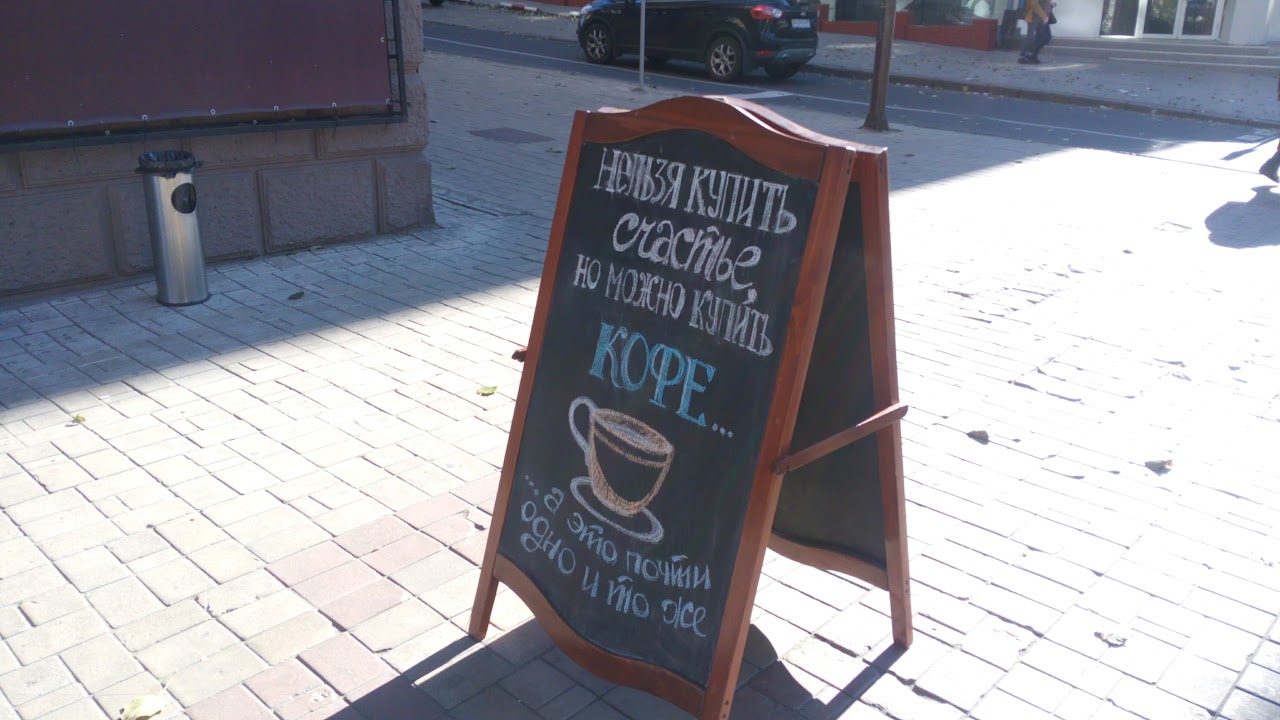 НЕЛЬЗЯ КУПИТЬ
счастье,
но можно купить
КОФЕ...
...а это почти
одно и то же